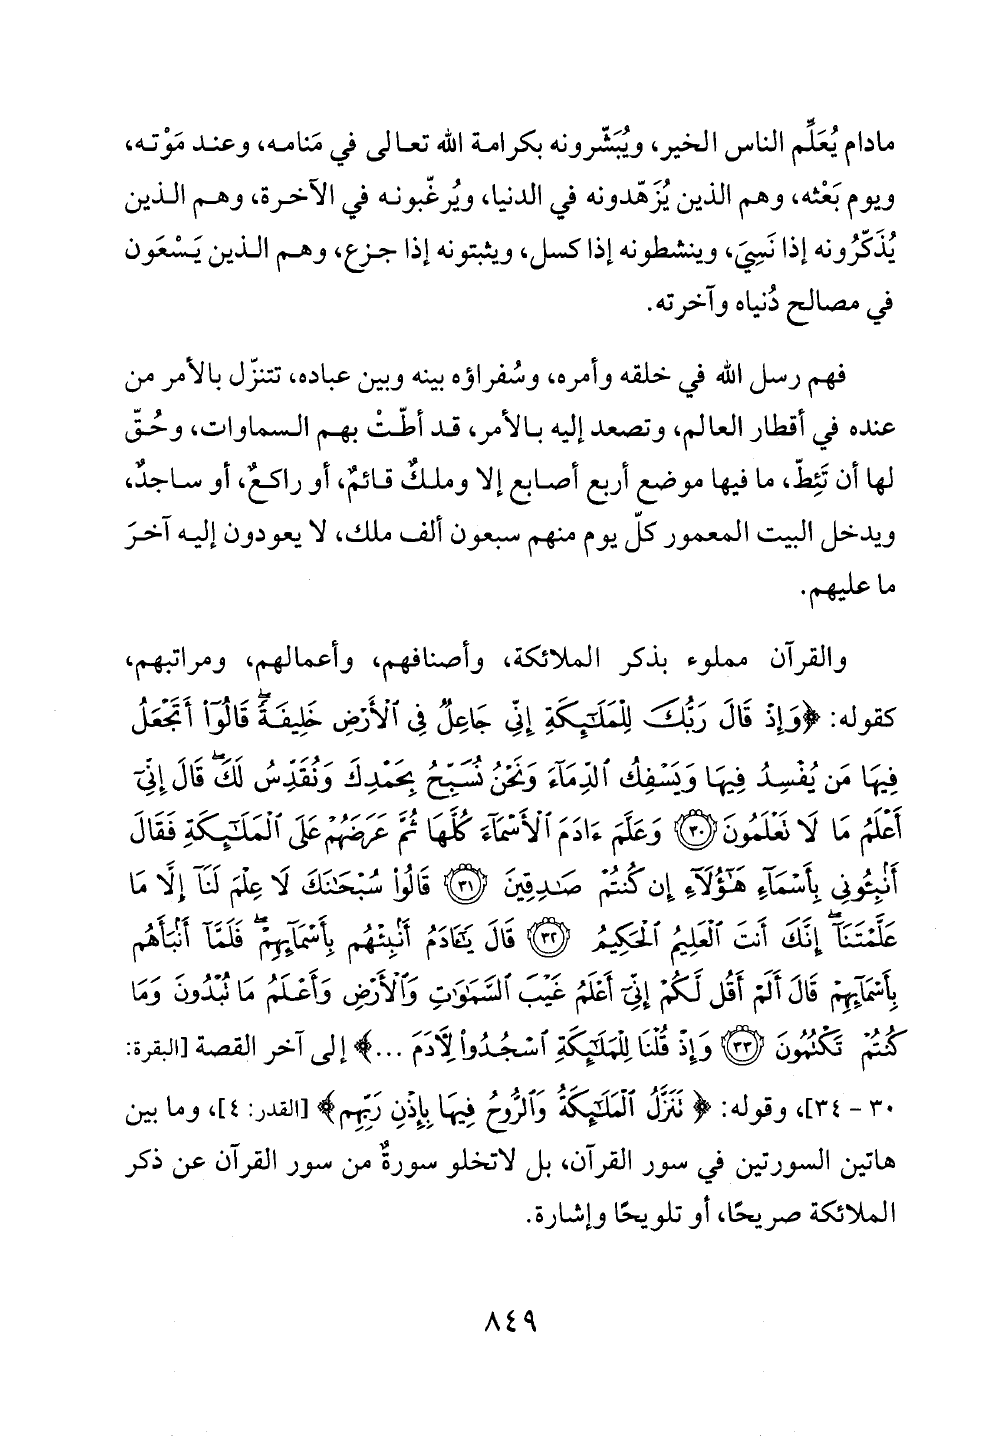 مادام يُعَلِّم الناس الخير، ويُبَشّرونه بكرامة الله تعالى في مَنامه، وعند مَوْته،
ويوم بَعْثه، وهم الذين يُزَهّدونه في الدنيا، ويُرغّبونه في الآخرة، وهم الذين
يُذَكّرُونه إذا نَسِيَ، وينشطونه إذا كسل، ويثبتونه إذا جزع، وهم الذين يَسْعَون
في مصالح دُنياه وآخرته.
فهم رسل الله في خلقه وأمره، وسُفراؤه بينه وبين عباده، تتنزّل بالأمر من
عنده في أقطار العالم، وتصعد إليه بالأمر، قد أطّتْ بهم السماوات، وحُقّ
لها أن تَئِطّ، ما فيها موضع أربع أصابع إلا وملكٌ قائمٌ، أو راكعٌ، أو ساجدٌ،
ويدخل البيت المعمور كلّ يوم منهم سبعون ألف ملك، لا يعودون إليه آخرَ
ما عليهم.
والقرآن مملوء بذكر الملائكة، وأصنافهم، وأعمالهم، ومراتبهم،
كقوله: ﴿وَإِذْ قَالَ رَبُّكَ لِلْمَلَٰٓئِكَةِ إِنِّى جَاعِلٌ فِى ٱلْأَرْضِ خَلِيفَةً ۖ قَالُوٓا۟ أَتَجْعَلُ
فِيهَا مَن يُفْسِدُ فِيهَا وَيَسْفِكُ ٱلدِّمَآءَ وَنَحْنُ نُسَبِّحُ بِحَمْدِكَ وَنُقَدِّسُ لَكَ ۖ قَالَ إِنِّىٓ
أَعْلَمُ مَا لَا تَعْلَمُونَ ٣٠ وَعَلَّمَ ءَادَمَ ٱلْأَسْمَآءَ كُلَّهَا ثُمَّ عَرَضَهُمْ عَلَى ٱلْمَلَٰٓئِكَةِ فَقَالَ
أَنۢبِـُٔونِى بِأَسْمَآءِ هَٰٓؤُلَآءِ إِن كُنتُمْ صَٰدِقِينَ ٣١ قَالُوا۟ سُبْحَٰنَكَ لَا عِلْمَ لَنَآ إِلَّا مَا
عَلَّمْتَنَآ ۖ إِنَّكَ أَنتَ ٱلْعَلِيمُ ٱلْحَكِيمُ ٣٢ قَالَ يَٰٓـَٔادَمُ أَنۢبِئْهُم بِأَسْمَآئِهِمْ ۖ فَلَمَّآ أَنۢبَأَهُم
بِأَسْمَآئِهِمْ قَالَ أَلَمْ أَقُل لَّكُمْ إِنِّىٓ أَعْلَمُ غَيْبَ ٱلسَّمَٰوَٰتِ وَٱلْأَرْضِ وَأَعْلَمُ مَا تُبْدُونَ وَمَا
كُنتُمْ تَكْتُمُونَ ٣٣ وَإِذْ قُلْنَا لِلْمَلَٰٓئِكَةِ ٱسْجُدُوا۟ لِءَادَمَ ...﴾ إلى آخر القصة [البقرة:
٣٠ - ٣٤]، وقوله: ﴿تَنَزَّلُ ٱلْمَلَٰٓئِكَةُ وَٱلرُّوحُ فِيهَا بِإِذْنِ رَبِّهِم﴾ [القدر: ٤]، وما بين
هاتين السورتين في سور القرآن، بل لاتخلو سورةٌ من سور القرآن عن ذكر
الملائكة صريحًا، أو تلويحًا وإشارة.
٨٤٩